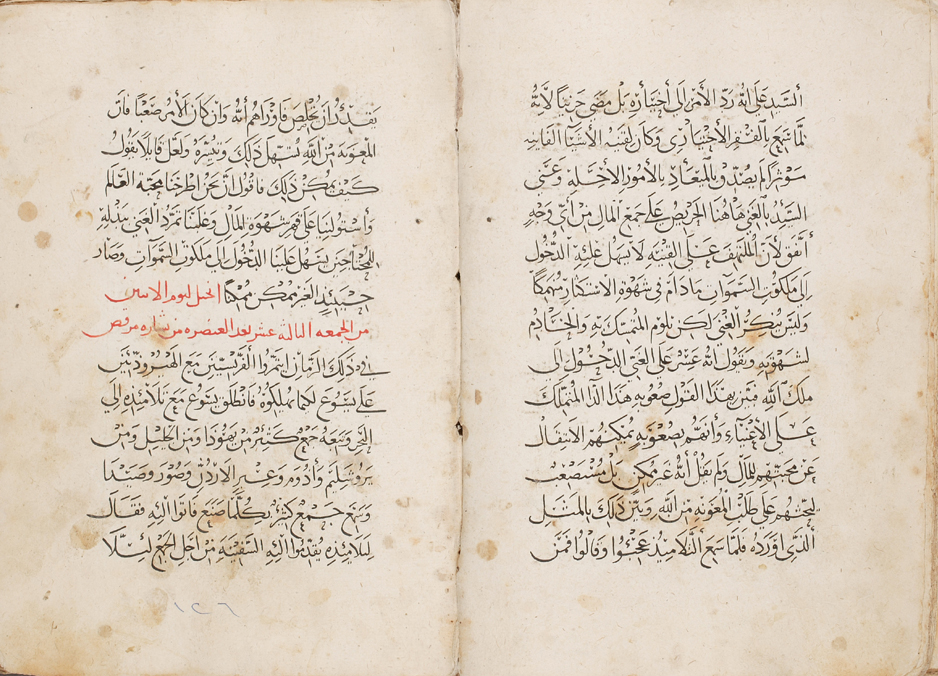 السيد على انه رد الامر الى اختياره بل مضى حزينًا لانه
لما سمع بالفقر الاختياري وكان لقنيه الاشيآ الفانيه
موثرًا لم يصدق بالميعاد بالامور الاجله وعنى
السيد بالغني هاهنا الحريص على جمع المال من أي وجهٍ
أتفق لان الملتهف على القنيه لا يسهل عليه الدخول
الى ملكوت السموات ما دام في شهوة الاستكثار منهمكًا
وليس ينكر الغنى لكن يلوم المتمسك به والخادم
لشهوته ويقول انه عسر على الغني الدخول الى
ملك الله فبين بهذا القول صعوبه هذا الدآ المتملك
على الاغنياء وأنهم بصعوبهٍ يمكنهم الانتقال
عن محبتهم للمال ولم يقل أنه غير ممكن بل مستصعب
ليحثهم على طلب المعونه من الله وبين ذلك بالمثل
الذي اورده فلما سمع التلاميذ عجبوا وقالوا فمن
يقدر ان يخلص فاوراهم أنه وان كان الامر صعبًا فان
المعونه من الله تسهل ذلك وتيسره ولعل قايلاً يقول
كيف يمكن ذلك فاقول ان نحن اطرحنا محبة العالم
وأستولينا على قهر شهوة المال وغلبنا تمرد الغنى ببذله
للمحتاجين يسهل علينا الدخول الى ملكوت السموات وصار
حينيدٍ الغير ممكن ممكنًا انجيل ليوم الاثنين
من الجمعه الثالثه عشر بعد العنصره من بشاره مرقص
في ذلك الزمان ايتمروا الفريسيين مع الهيرودسيين
على يسوع لكيما يهلكوه فانطلق يسوع مع تلاميذه إلى
البحر وتبعه جمع كثير من يهوذا ومن الجليل ومن
يروشليم وأدوم وعبر الاردن وصور وصيدا
وسمع جمع كثير بكلما صنع فاتوا اليه فقال
لتلاميذه يقدموا اليه السفينه من اجل الجمع لئلا
١٢٦